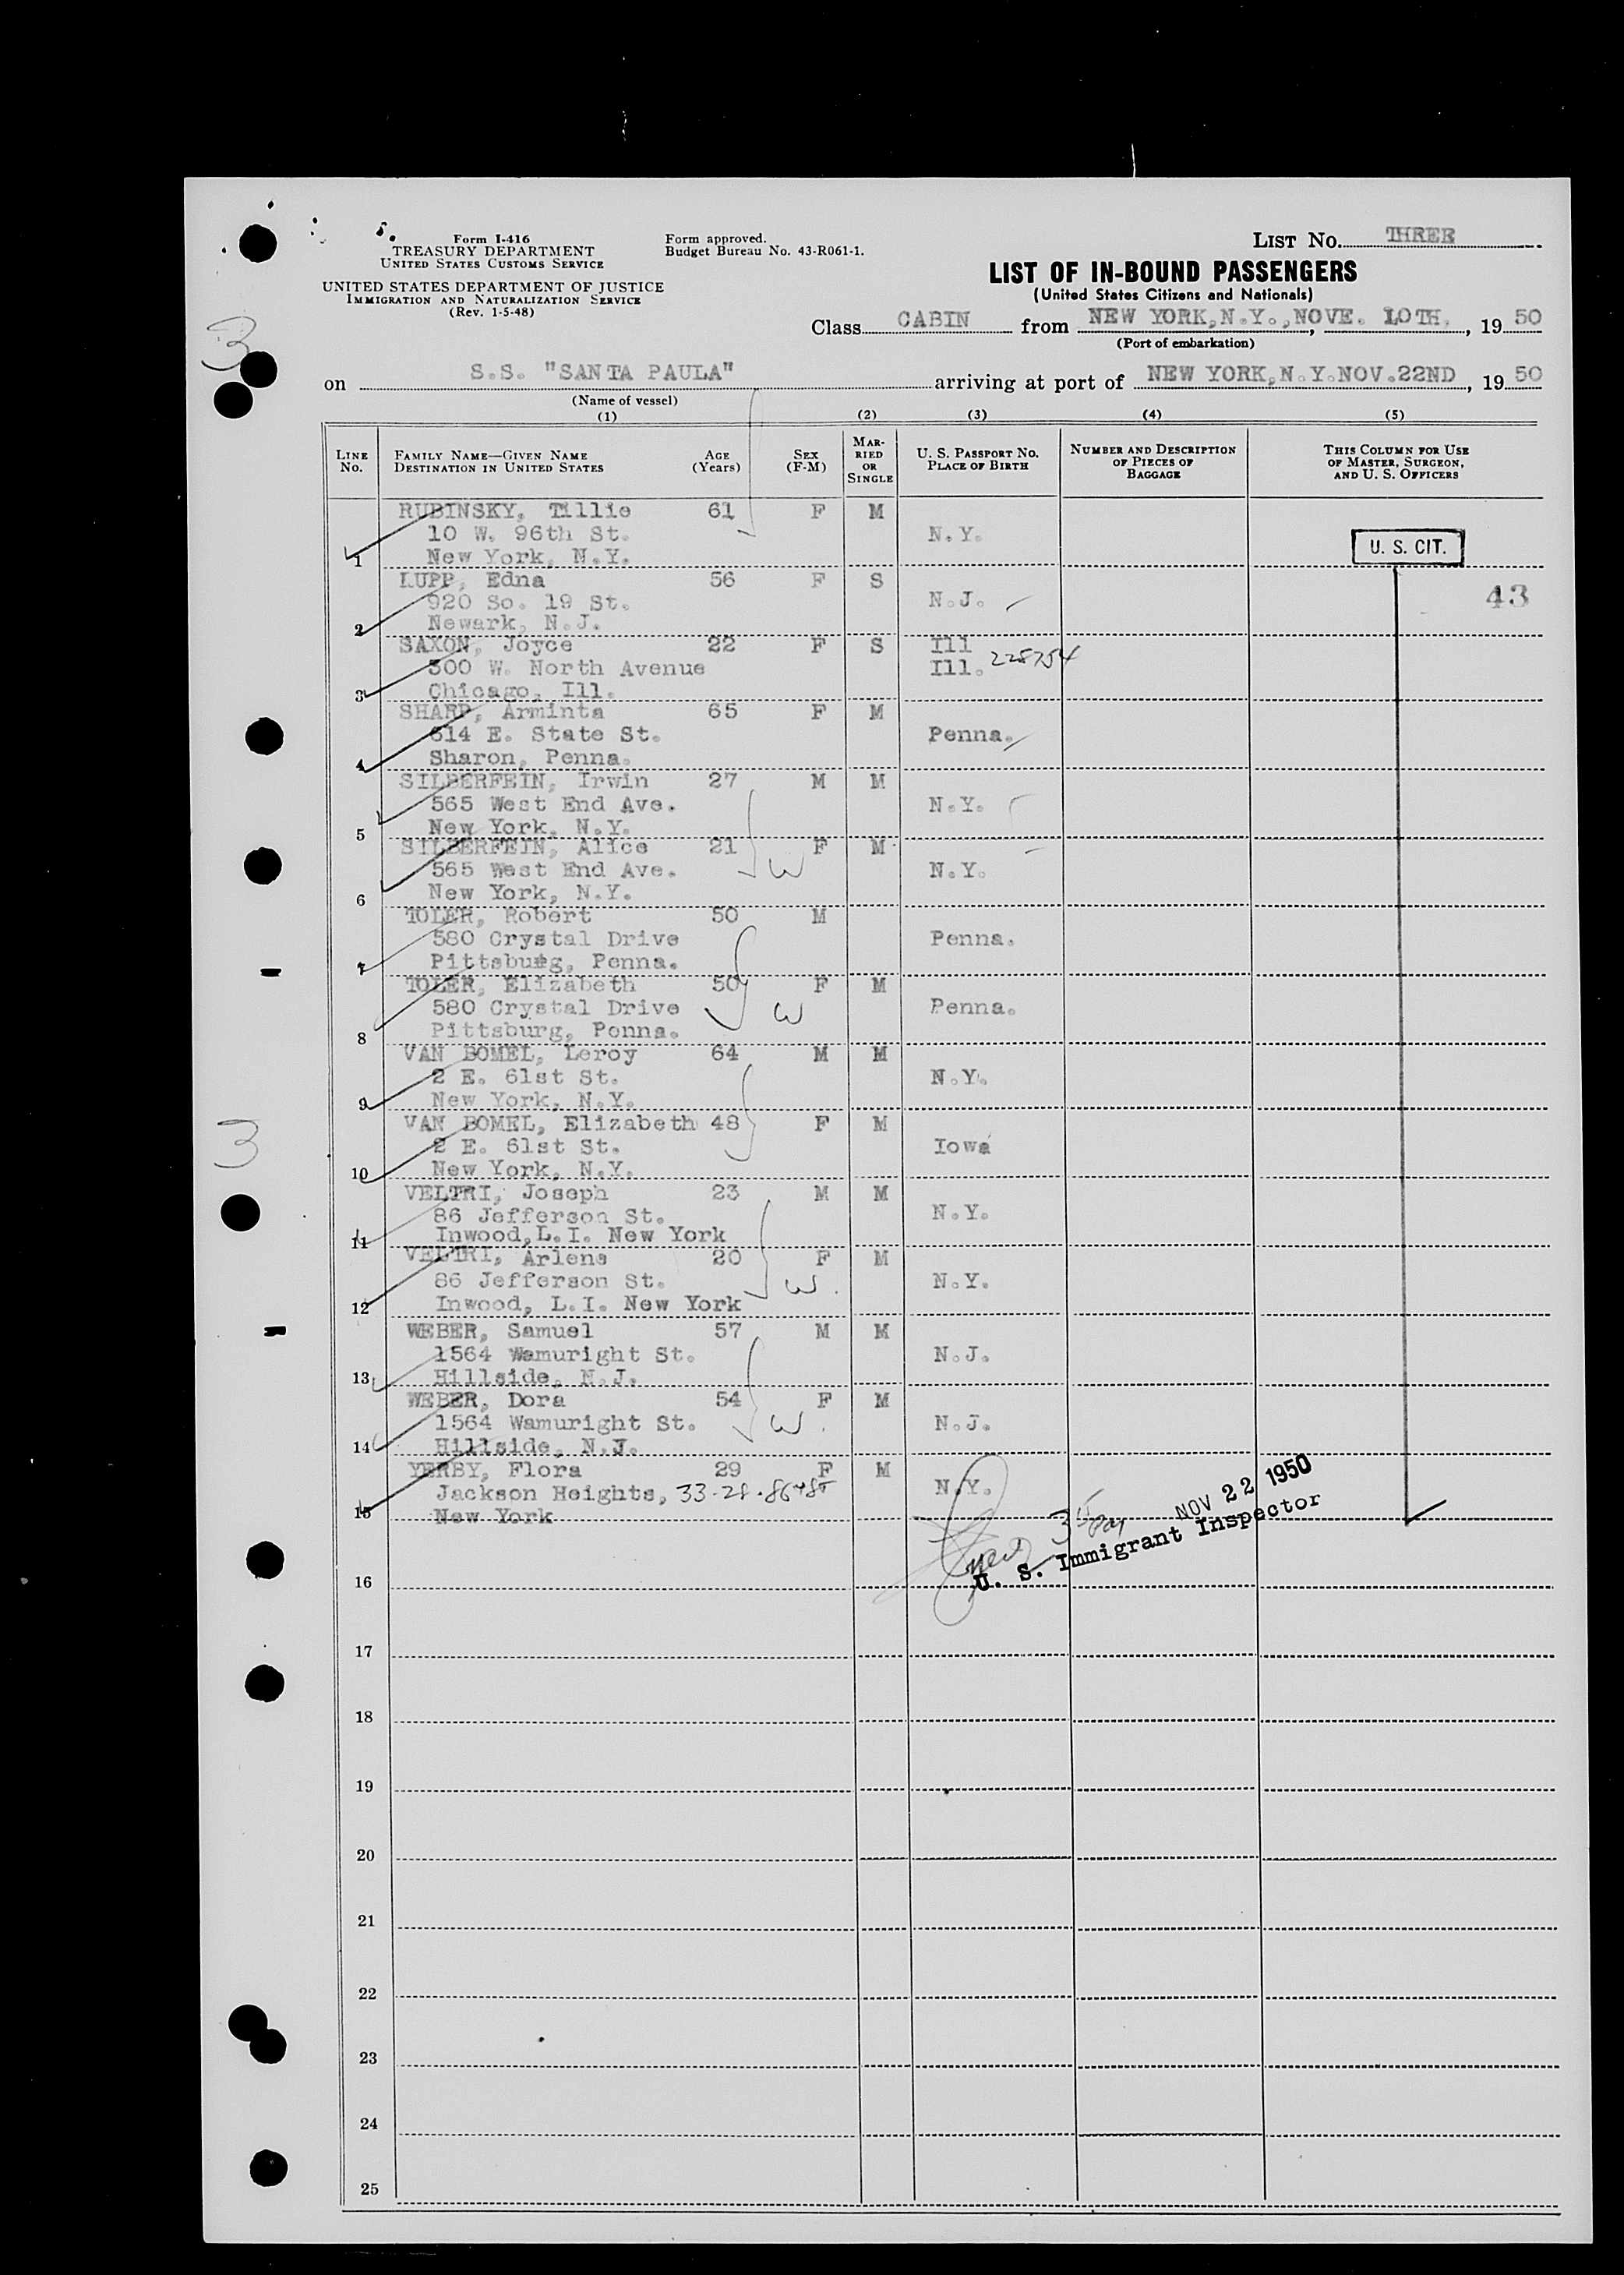 Form I-416
TREASURY DEPARTMENT
UNITED STATES CUSTOMS SERVICE
UNITED STATES DEPARTMENT OF JUSTICE
IMMIGRATION AND NATURALIZATION SERVICE
(Rev. 1-5-48)
Form approved.
Budget Bureau No. 43-R061-1.
LIST NO. THREE
LIST OF IN-BOUND PASSENGERS
(United States Citizens and Nationals)
Class CABIN from NEW YORK,N.Y.,NOVE. 1OTH, 19 50
(Port of embarkation)
3
on S.S. "SANTA PAULA" arriving at port of NEW YORK,N.Y.NOV.22ND, 19 50
(Name of vessel)
(1) (2) (3) (4) (5)
LINE NO. FAMILY NAME—GIVEN NAME DESTINATION IN UNITED STATES AGE (Years) SEX (F-M) MARRIED OR SINGLE U. S. PASSPORT NO. PLACE OF BIRTH NUMBER AND DESCRIPTION OF PIECES OF BAGGAGE THIS COLUMN FOR USE OF MASTER, SURGEON, AND U. S. OFFICERS
RUBINSKY, Tillie 61 F M
10 W. 96th St. N.Y. U. S. CIT.
1 New York, N.Y.
LUPP, Edna 56 F S
920 So. 19 St. N.J. 43
2 Newark, N.J.
SAXON, Joyce 22 F S Ill
300 W. North Avenue Ill. 228754
3 Chicago, Ill.
SHARP, Arminta 65 F M
614 E. State St. Penna.
4 Sharon, Penna.
SILBERFEIN, Irwin 27 M M
565 West End Ave. N.Y.
5 New York, N.Y.
SILBERFEIN, Alice 21 F M
565 West End Ave. W N.Y.
6 New York, N.Y.
TOLER, Robert 50 M
580 Crystal Drive Penna.
7 Pittsburg, Penna.
TOLER, Elizabeth 50 F M
580 Crystal Drive W Penna.
8 Pittsburg, Penna.
VAN BOMEL, Leroy 64 M M
2 E. 61st St. N.Y.
9 New York, N.Y.
VAN BOMEL, Elizabeth 48 F M
3 2 E. 61st St. Iowa
10 New York, N.Y.
VELTRI, Joseph 23 M M
86 Jefferson St. N.Y.
11 Inwood,L.I. New York
VELTRI, Arlene 20 F M
86 Jefferson St. W. N.Y.
12 Inwood, L.I. New York
WEBER, Samuel 57 M M
1564 Wamuright St. N.J.
13 Hillside, N.J.
WEBER, Dora 54 F M
1564 Wamuright St. W. N.J.
14 Hillside, N.J.
YERBY, Flora 29 F M
Jackson Heights, N.Y.
15 New York
NOV 22 1950
U. S. Immigrant Inspector
16
17
18
19
20
21
22
23
24
25